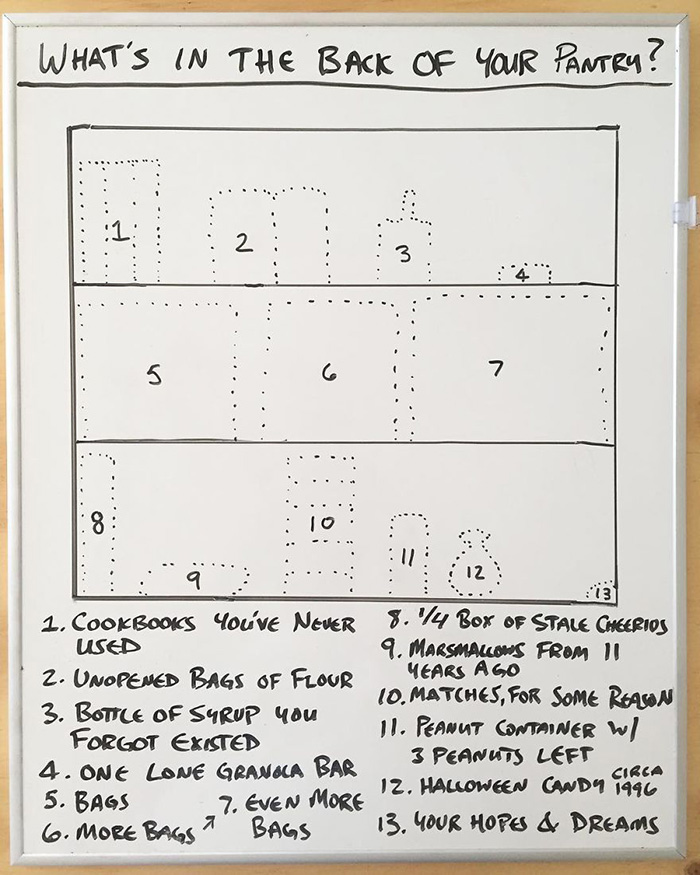 WHAT'S IN THE BACK OF YOUR PANTRY?
1
2
3
4
5
6
7
8
9
10
11
12
13
1. COOKBOOKS YOU'VE NEVER
USED
2. UNOPENED BAGS OF FLOUR
3. BOTTLE OF SYRUP YOU
FORGOT EXISTED
4. ONE LONE GRANOLA BAR
5. BAGS
6. MORE BAGS
7. EVEN MORE
BAGS
8. 1/4 BOX OF STALE CHEERIOS
9. MARSMALLOWS FROM 11
YEARS AGO
10. MATCHES, FOR SOME REASON
11. PEANUT CONTAINER W/
3 PEANUTS LEFT
12. HALLOWEEN CANDY CIRCA
1996
13. YOUR HOPES & DREAMS